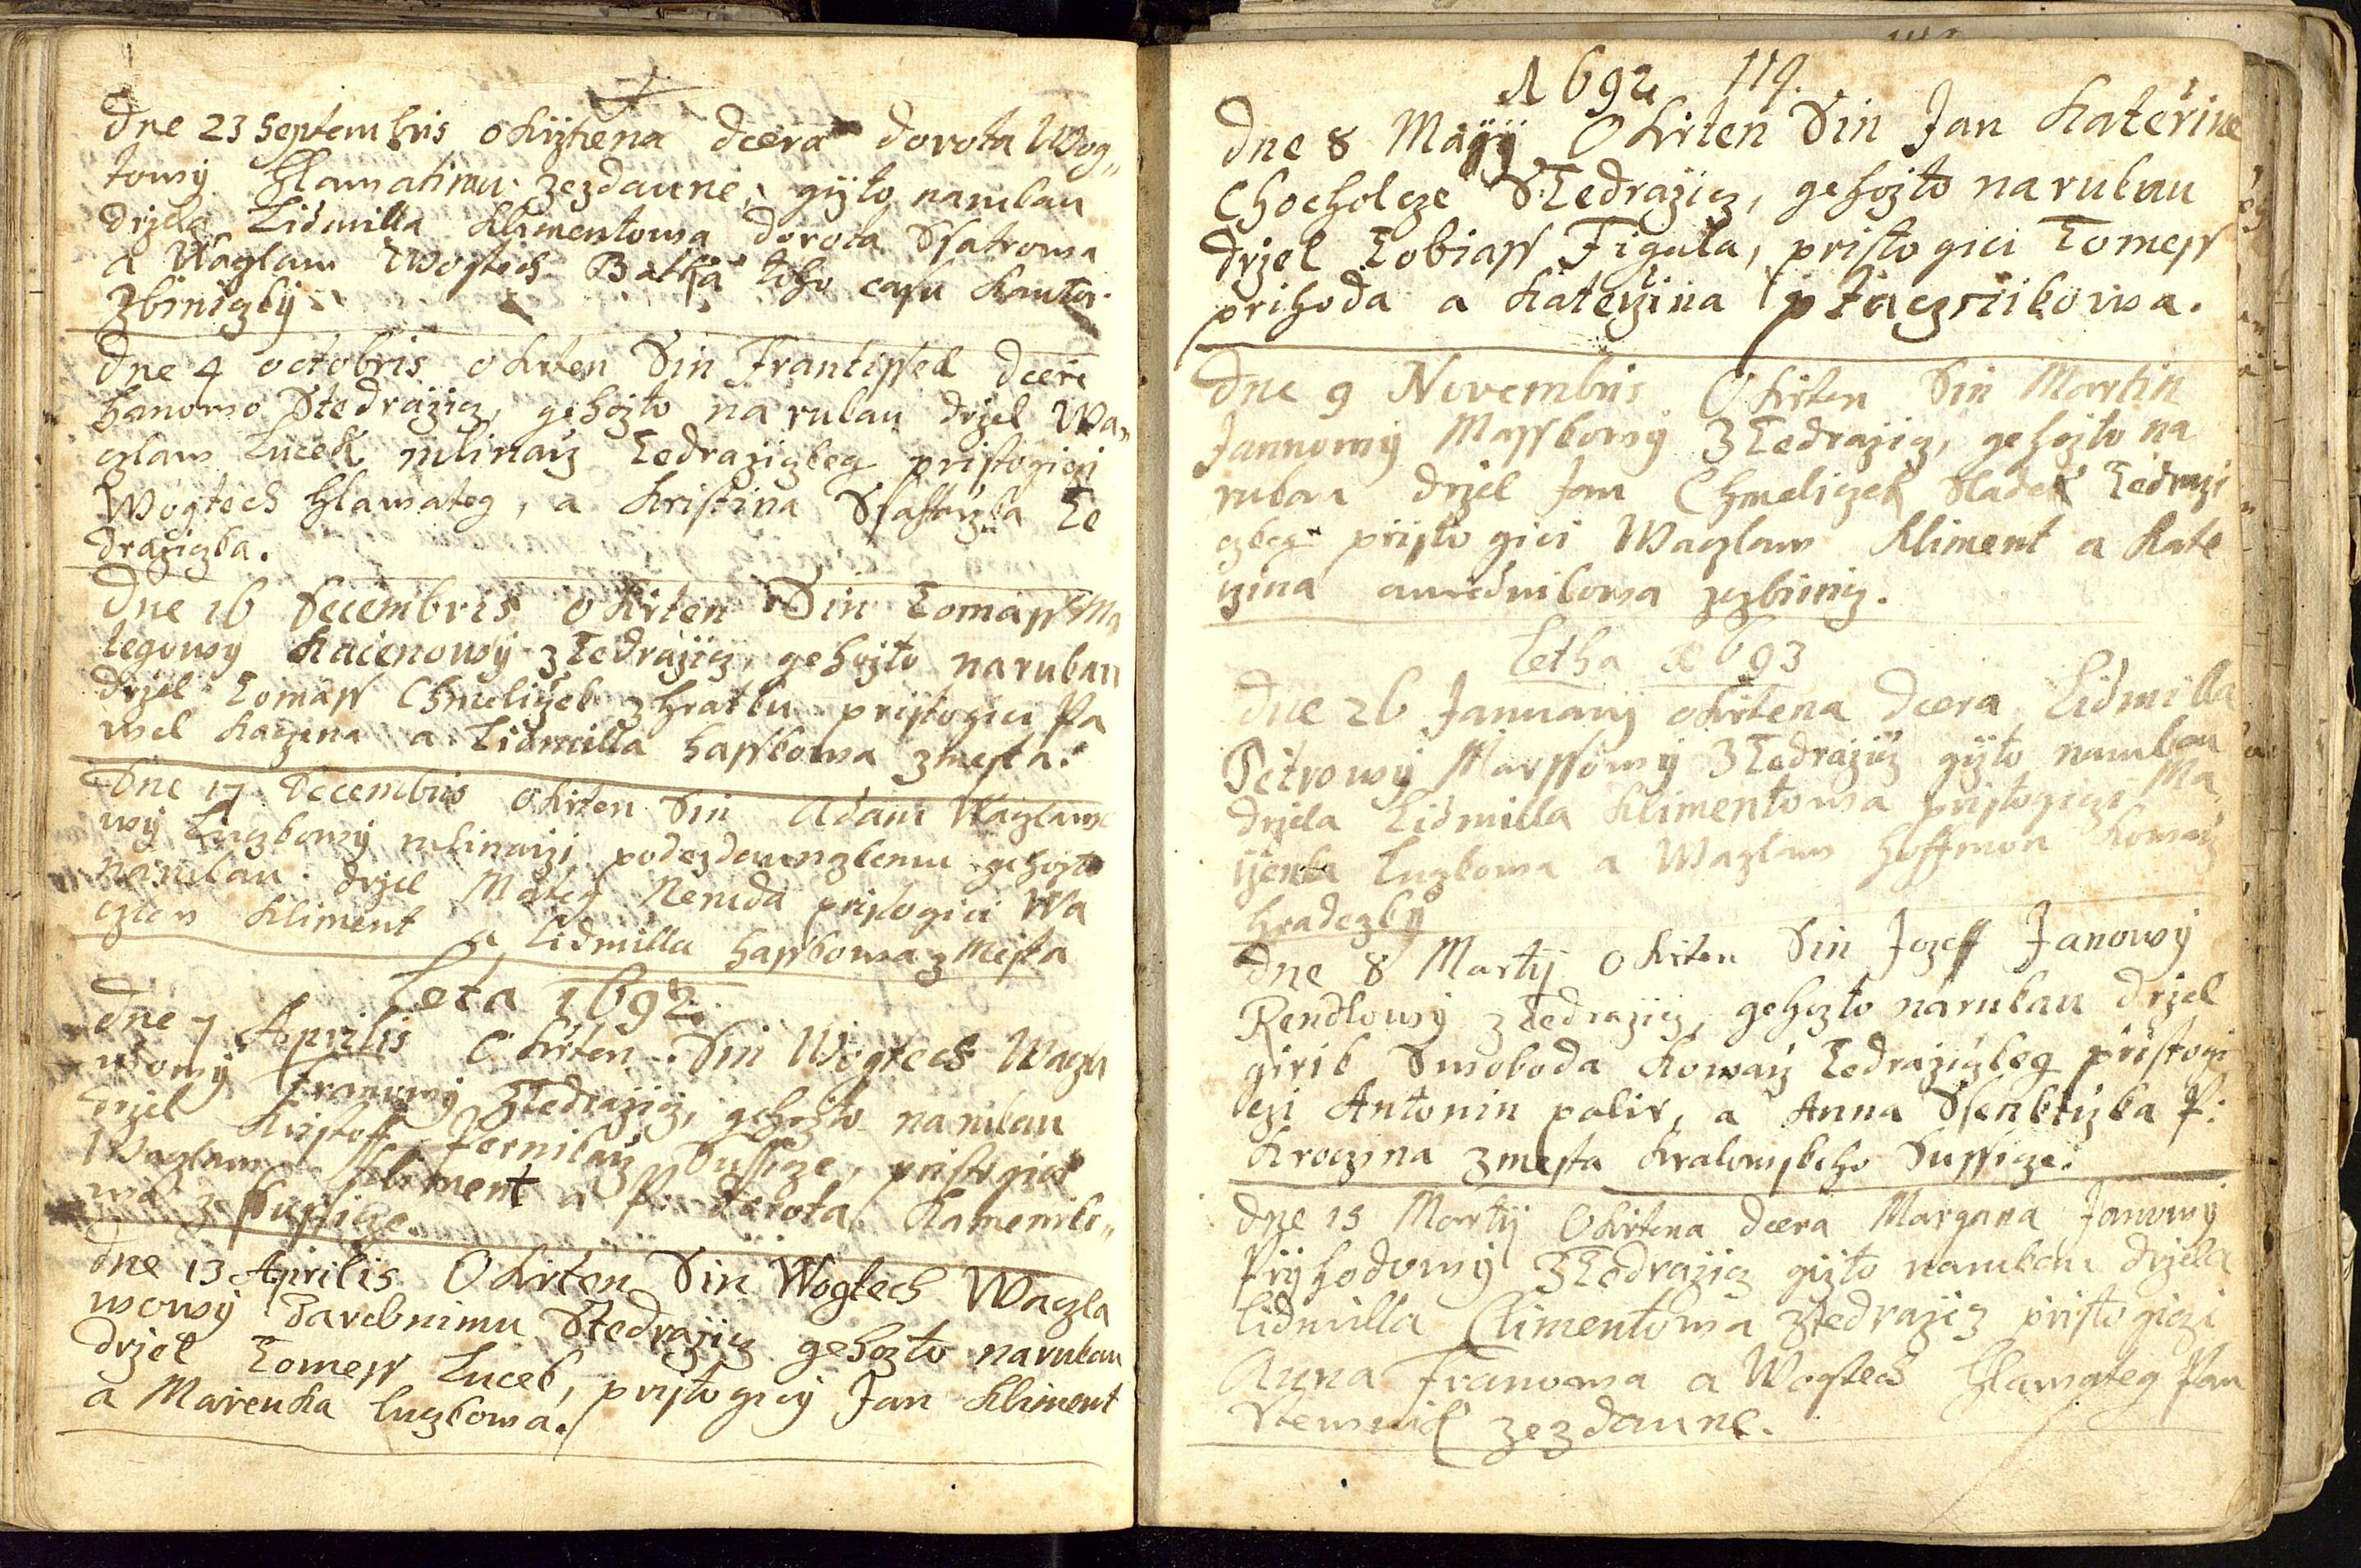 Dne 23 Septembris okrztiena dcera dorota Wog„
towy Hlawatimu zezdaune, gizto narukau
drzela Lidmilla Klimentowa dorota Ssatrowa
a Waglaw Wogtech Batka toho casu Kantor
Zbiniczky
Dne 4 octobris okrten Sin Frantissek dceri
hanowo Stedrazicz, gehozto na rukau drzel Wa„
czlaw Lucek mlinarz Tedrazigkeg pristogiczi
Wogtech Hlawateg, a Kristina Ssaffarzka Te
drazigka.
Dne 16 Decembris okrten Sin Tomass Ma
tegowy Kacenowy z Tedrazicz, gehozto narukau
drzel Tomass Chmeliczek z hratku pristogici Pa
wel Kaczena a Lidmilla hasskowa zmesta.
Dne 17 Decembris okrten Sin Adam Waczlawo
wy Luczkowy mlinarzi podezdaunczkemu gehozto
narukau drzel Mateg Neruda pristogici Wa
czlaw Kliment a Lidmilla hasskowa z Mesta
Leta 1692.
Dne 7 Aprilis Okrten Sin Wogtech Waczla
wowy Franowy Ztedrazicz, gehozto narukau
drzel Kristoff Pernikarz Sussicze, pristogici
Waczlaw Kliment a P. dorota Kamenik„
wa ze Sussicze.
Dne 13 Aprilis Okrten Sin Wogtech Waczla
wowy Parebnimu Stedrazicz gehozto narukau
drzel Tomess Lucek, pristogicy Jan Kliment
a Marenka Luczkowa.
1692 119.
Dne 8 Mayy Okrten Sin Jan Katerine
Chocholcze STedrazicz, gehozto narukau
drzel Tobiass Figula, pristogici Tomess
prihoda a Katerzina ptacznikowa.
Dne 9 Novembris Okrten Sin Martin
Jannowy Masskowy ZTedrazicz, gehozto na
rukau drzel Jan Chmeliczek Sladek Tedrazi
czkeg pristogici Waczlaw Kliment a Kate
rzina aurednikowa zezbinicz.
Letha 1693
Dne 26 January okrtena Dcera Lidmilla
Petrowy Marssowy ZTedrazicz gizto narukau
drzela Lidmilla Klimentowa pristogiczi Ma
rzenka Luczkowa a Waczlaw Hoffmon Kowarz
hradeczky
Dne 8 Martij okrten Sin Jozeff Janowy
Rendlowy zTedrazicz, gehozto narukau drzel
girik Swoboda Kowarz Tedraziczkeg pristogi
czi Antonin polir, a Anna Ssenkrizka P:
Kroczina zmesta Kralowskeho Sussicze.
Dne 15 Martij Okrtena dcera Margana Janowy
Przyhodowy ZTedrazicz gizto narukau drzela
Lidmilla Climentowa ztedrazicz pristogiczi
Anna Franowa a Wogtech Hlawateg Pan
zezdaune.